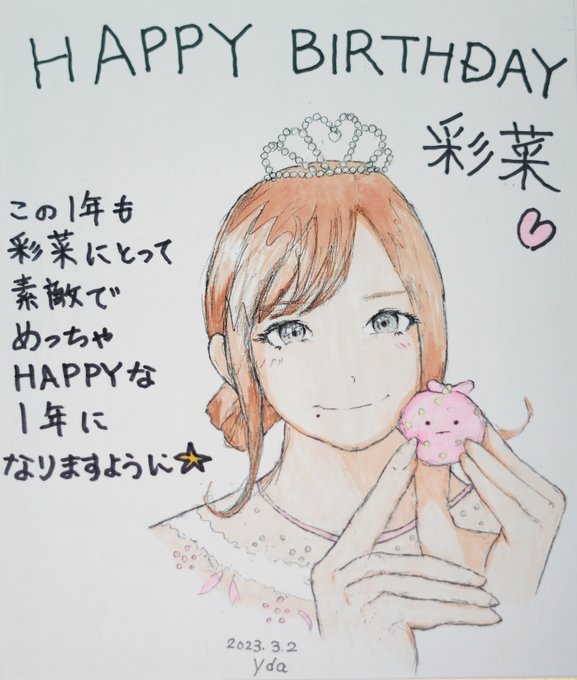 HAPPY BIRTHDAY
彩菜
この1年も
彩菜にとって
素敵で
めっちゃ
HAPPYな
1年に
なりますように
2023.3.2
yda